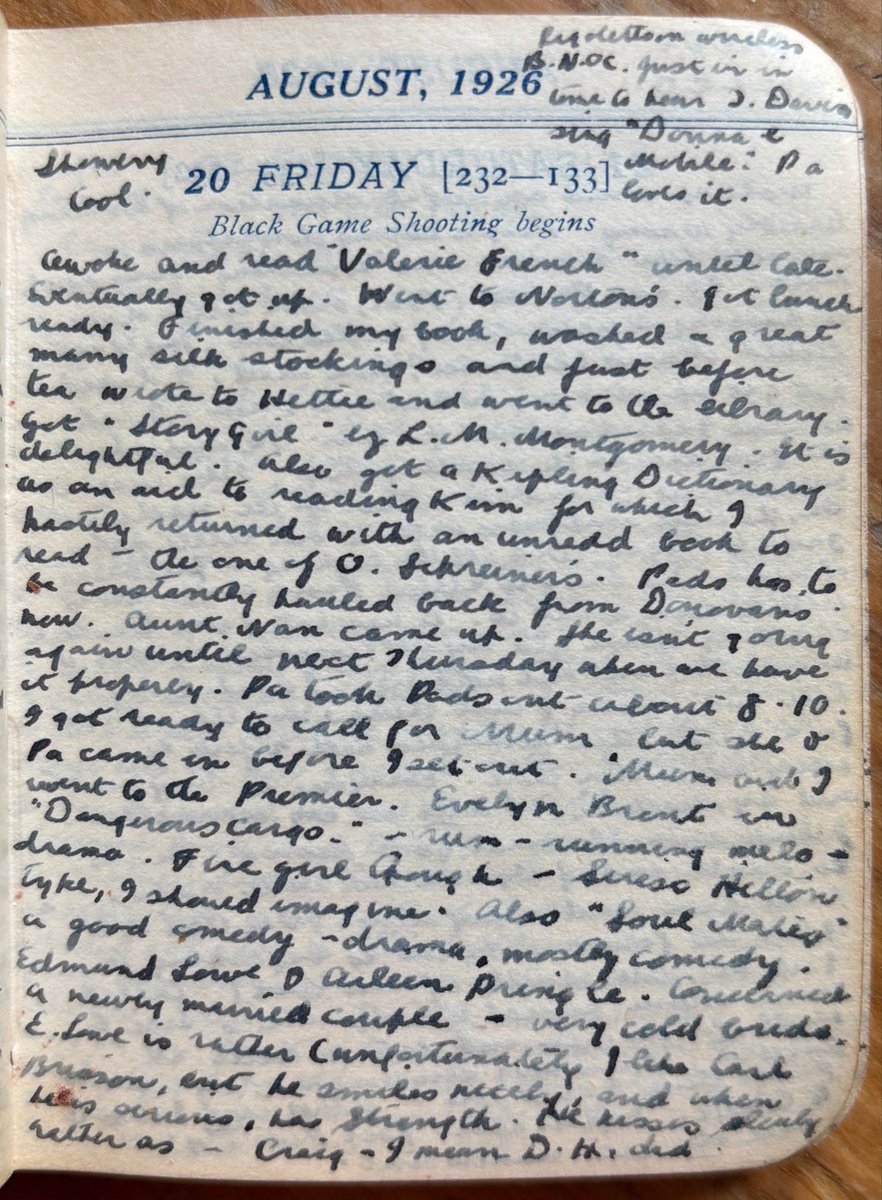 AUGUST, 1926
Rigoletto on wireless
B.N.O.C. Just in in
time to hear T. Davies
sing "Donna e
Mobile". Pa
loves it.
Showery
Cool.
20 FRIDAY [232—133]
Black Game Shooting begins
Awoke and read "Valerie French" until late.
Eventually got up. Went to Norton's. Got lunch
ready. Finished my book, washed a great
many silk stockings and just before
tea wrote to Hettie and went to the library.
Got "Story Girl" by L. M. Montgomery. It is
delightful. Also got a Kipling Dictionary
as an aid to reading Kim for which I
hastily returned with an unredd book to
read – the one of O. Schreiner's. Pads has to
be constantly hauled back from Donovans
now. Aunt Nan came up. She isn't going
again until next Thursday when we have
it properly. Pa took Pads out about 8.10.
I got ready to call for Mum but she &
Pa came in before I set out. Mum and I
went to the Premier. Evelyn Brent in
"Dangerous Cargo." – rum-running melo-
drama. Fine girl though – Hellón
type, I should imagine. Also "Soul Mates"
a good comedy-drama, mostly comedy.
Edmund Lowe & Aileen Pringle. Concerned
a newly married couple – very cold bride.
E. Lowe is rather (unfortunately) like Carl
Brisson, but he smiles nicely, and when
he is serious, has strength. He kisses
rather as – Craig – I mean D. H. did.